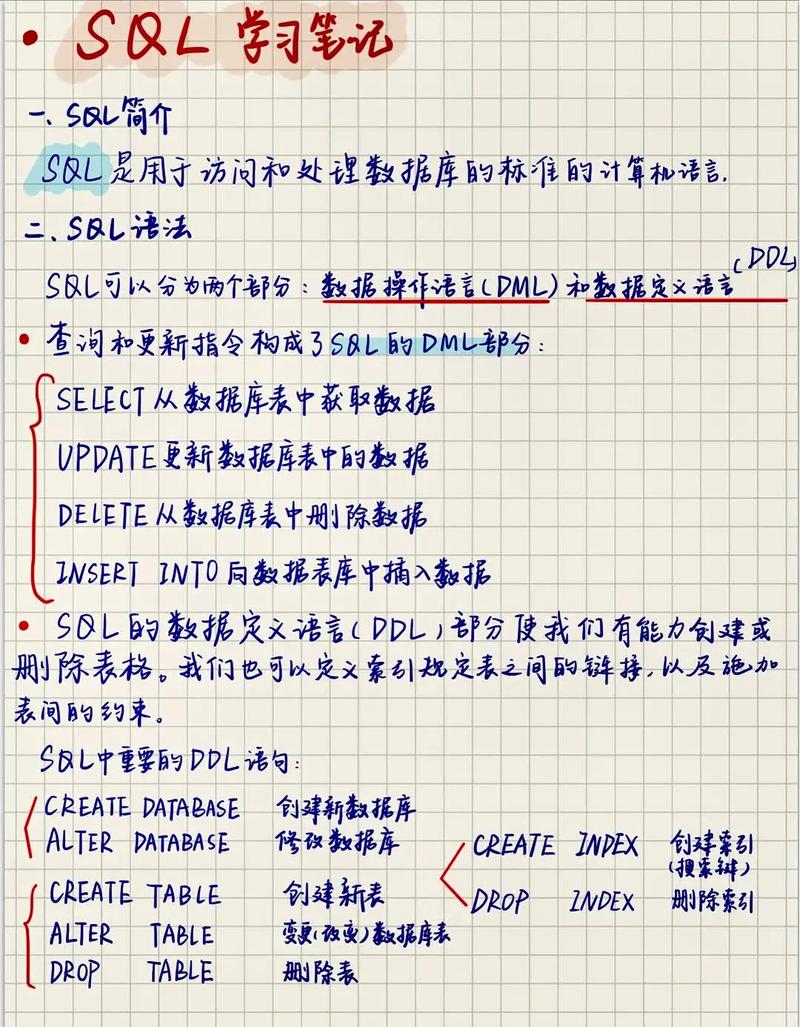 • SQL 学习笔记
一、SQL简介
SQL是用于访问和处理数据库的标准的计算机语言.
二、SQL语法
SQL可以分为两个部分：数据操作语言(DML)和数据定义语言(DDL)
• 查询和更新指令构成了SQL的DML部分：
SELECT 从数据库表中获取数据
UPDATE 更新数据库表中的数据
DELETE 从数据库表中删除数据
INSERT INTO 向数据表库中插入数据
• SQL的数据定义语言(DDL)部分使我们有能力创建或
删除表格。我们也可以定义索引规定表之间的链接，以及施加
表间的约束。
SQL中重要的DDL语句：
CREATE DATABASE 创建新数据库
ALTER DATABASE 修改数据库
CREATE TABLE 创建新表
ALTER TABLE 变更(改变)数据库表
DROP TABLE 删除表
CREATE INDEX 创建索引
(搜索键)
DROP INDEX 删除索引